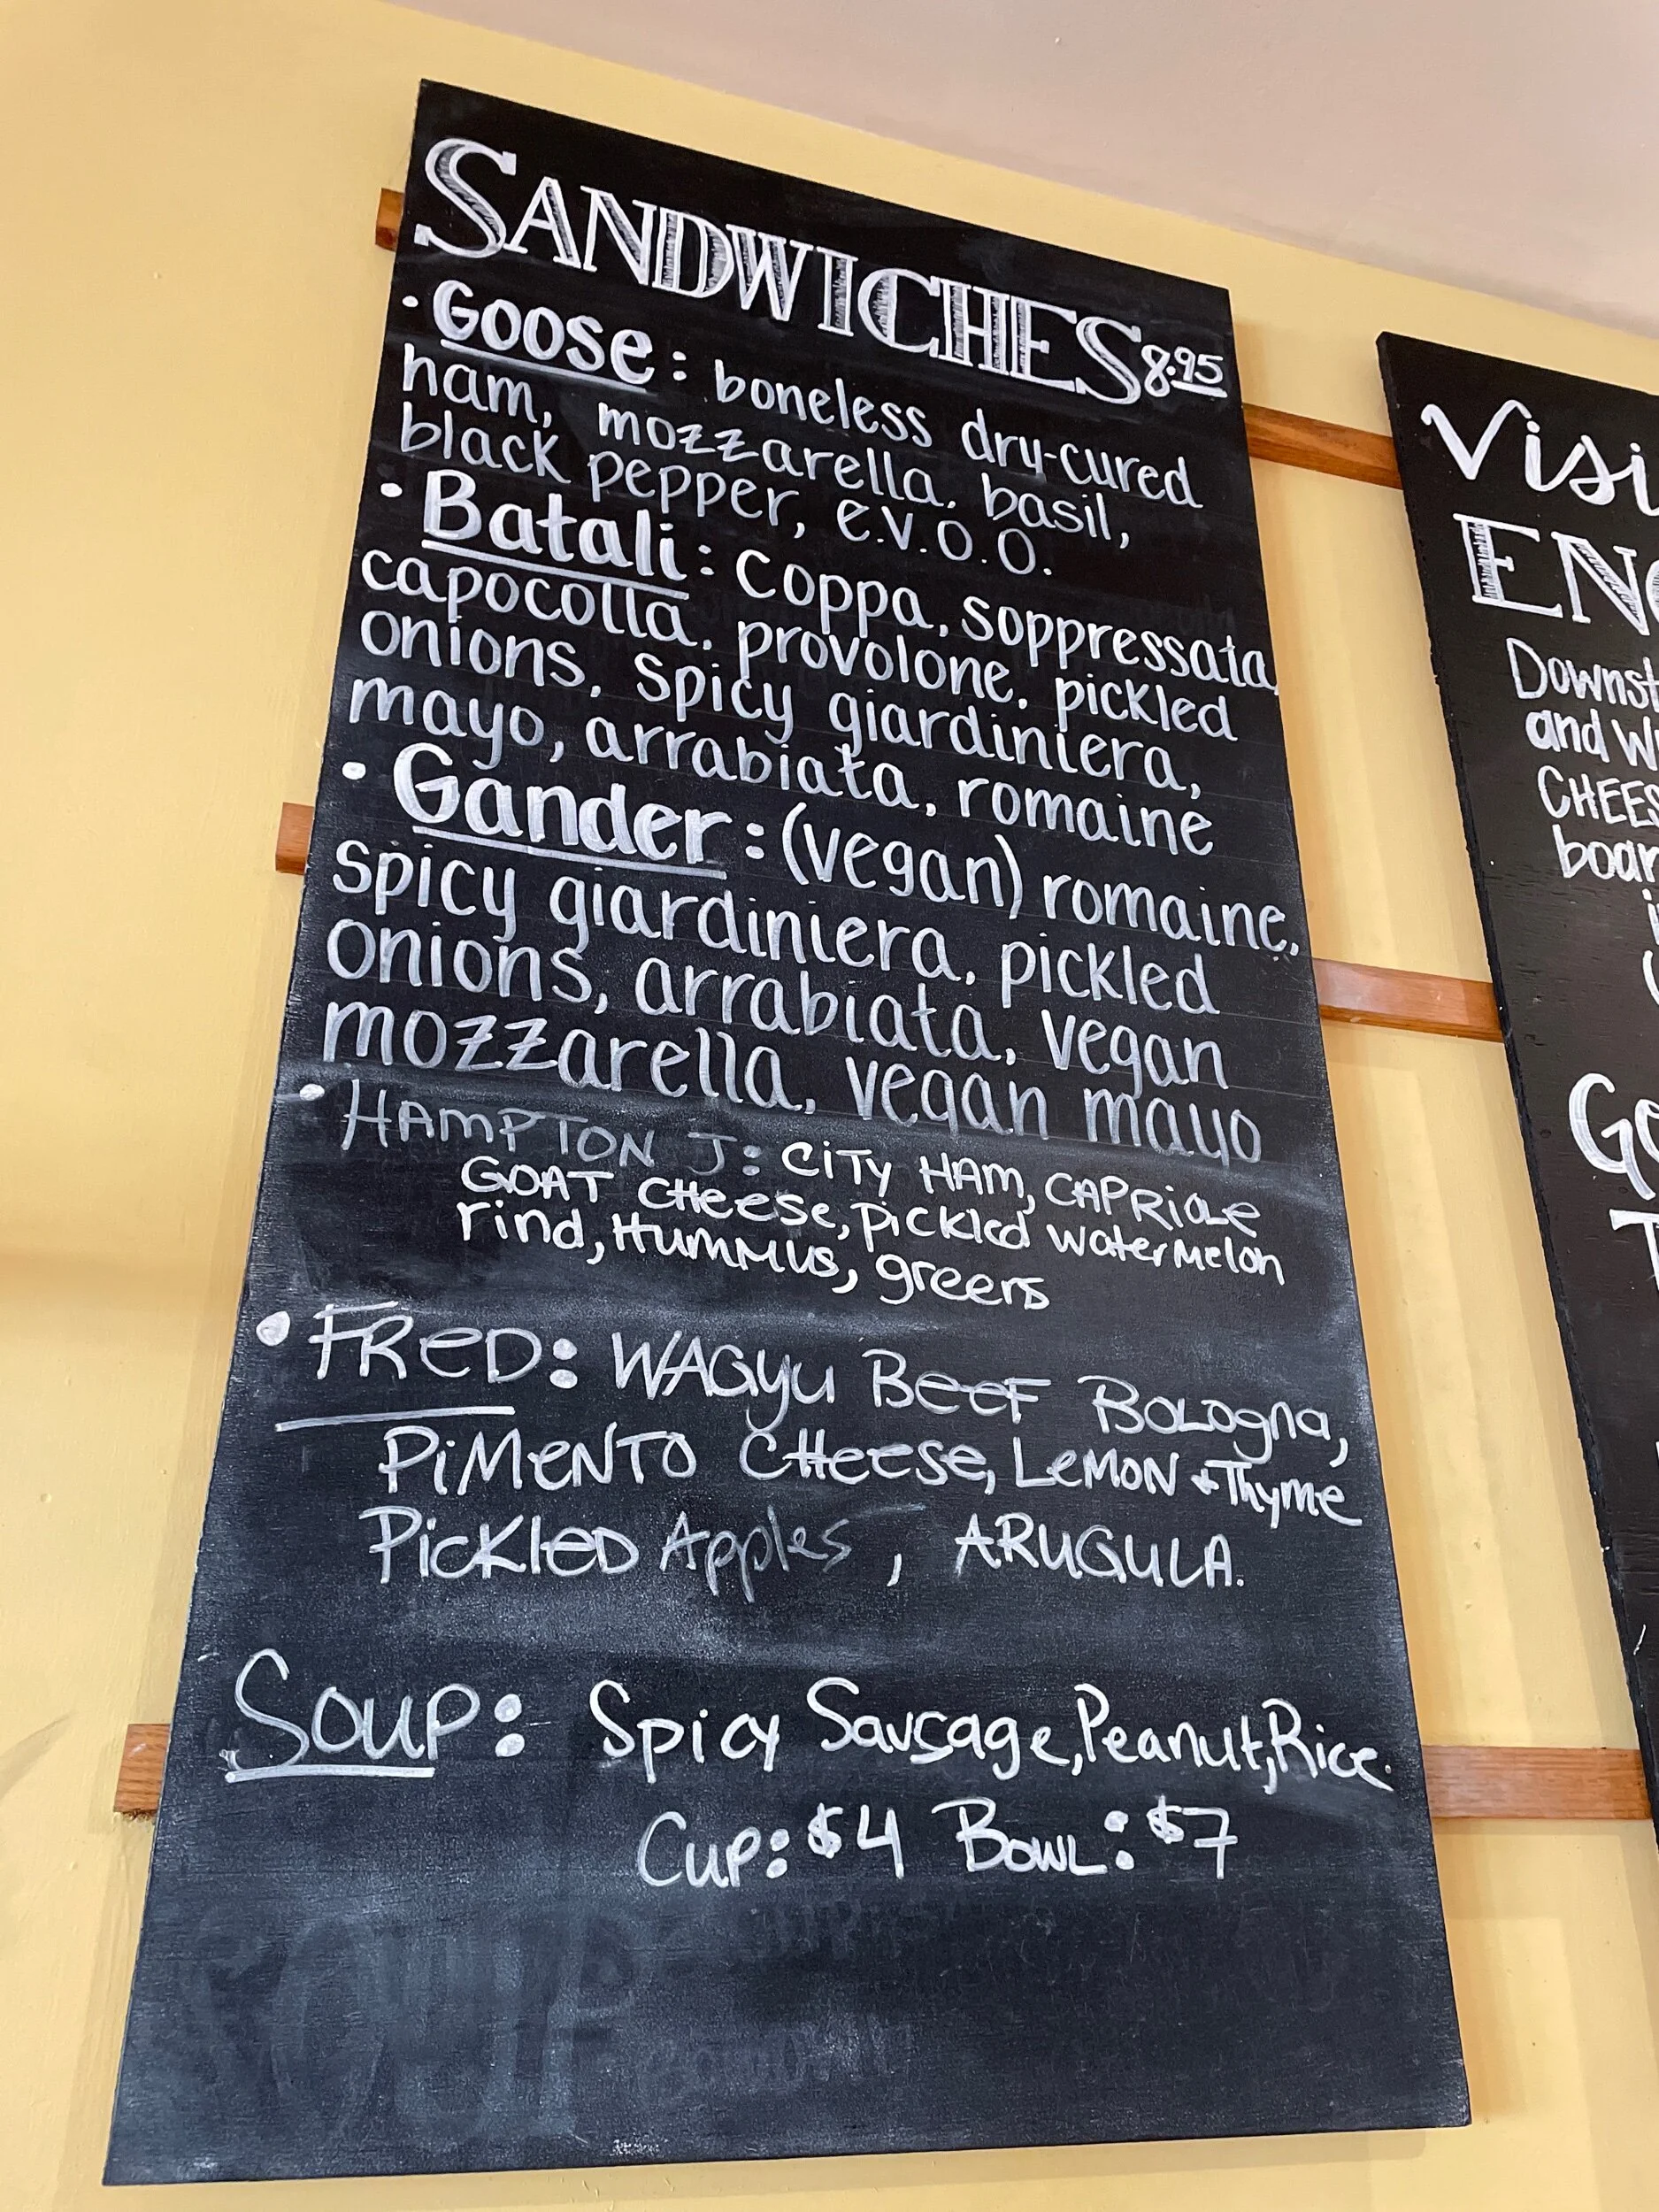 SANDWICHES 8.95
• Goose: boneless dry-cured
ham, mozzarella, basil,
black pepper, e.v.o.o.
• Batali: coppa, soppressata,
capocolla, provolone, pickled
onions, spicy giardiniera,
mayo, arrabiata, romaine
• Gander: (vegan) romaine,
spicy giardiniera, pickled
onions, arrabiata, vegan
mozzarella, vegan mayo
• HAMPTON J: CiTY HAM, CAPRiOLe
GOAT CHeese, pickled watermelon
rind, Hummus, greens
• FReD: WAGyu BeeF BOLOgna,
PiMeNTO CHeese, LeMON + Thyme
PickleD Apples, ARUGULA.
Soup: Spicy Sausage, Peanut, Rice.
Cup: $4 BOWL: $7
Visi
ENO
Downst
and W
CHEES
boar